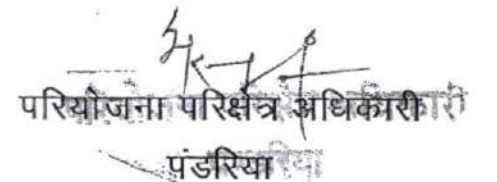 परियोजना परिक्षेत्र अधिकारी
पंडरिया